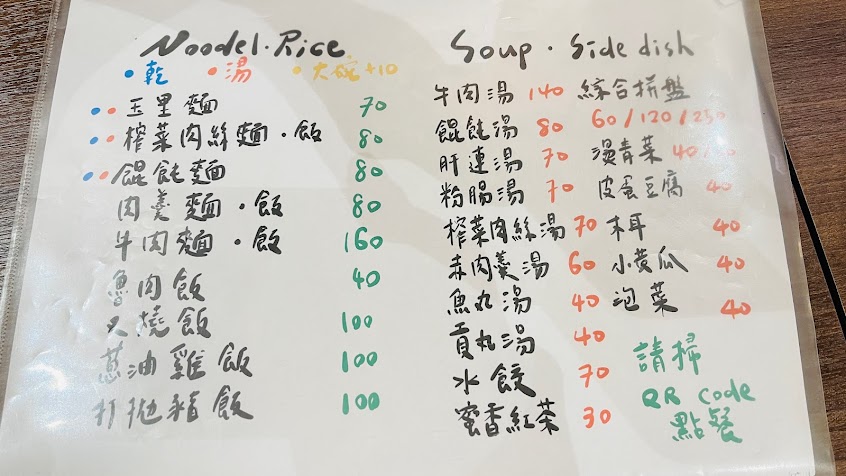 Noodel·Rice
•乾 •湯 •大碗+10
••玉里麵 70
••榨菜肉絲麵·飯 80
••餛飩麵 80
肉羹麵·飯 80
牛肉麵·飯 160
魯肉飯 40
叉燒飯 100
蔥油雞飯 100
打拋豬飯 100
Soup·Side dish
牛肉湯 140
餛飩湯 80
肝連湯 70
粉腸湯 70
榨菜肉絲湯 70
赤肉羹湯 60
魚丸湯 40
貢丸湯 40
水餃 70
蜜香紅茶 30
綜合拼盤
60/120/250
燙青菜 40/
皮蛋豆腐 40
木耳 40
小黃瓜 40
泡菜 40
請掃
QR code
點餐